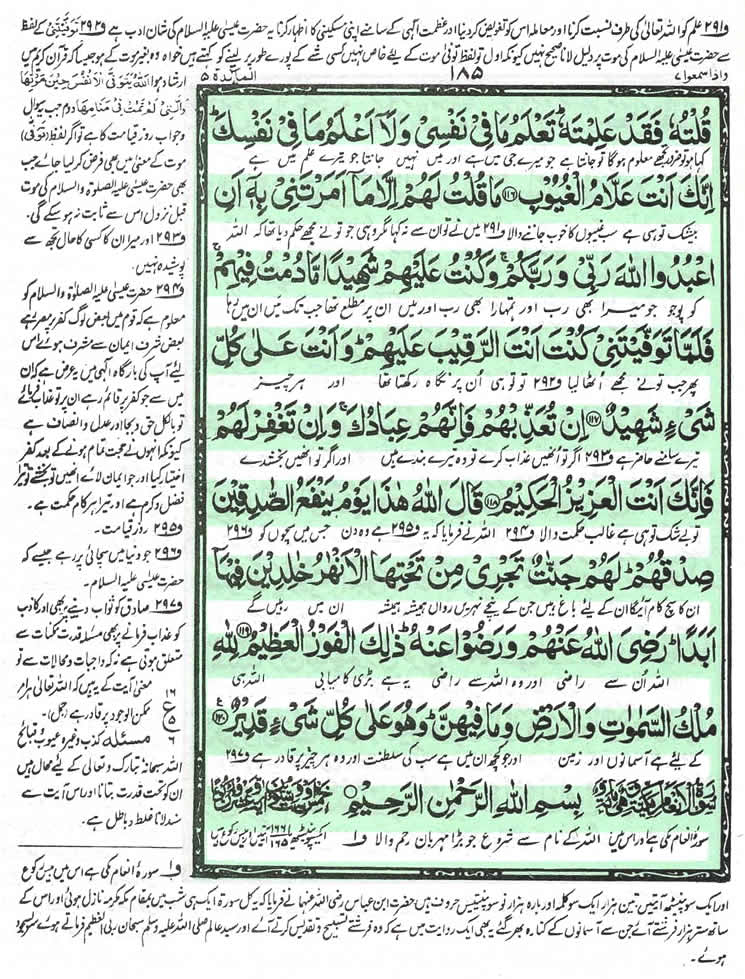 و۲۹۱ علم کو اللہ تعالیٰ کی طرف نسبت کرنا اور معاملہ اس کو تفویض کر دینا اور عظمتِ الٰہی کے سامنے اپنی مسکینی کا اظہار کرنا یہ حضرت عیسیٰ علیہ السلام کی شانِ ادب ہے و۲۹۲ تَوَفَّیْتَنِیْ کے لفظ
سے حضرت عیسیٰ علیہ السلام کی موت پر دلیل لانا صحیح نہیں کیونکہ اول تو لفظ توفی موت کے لیے خاص نہیں کسی شے کے پورے طور پر لینے کو کہتے ہیں خواہ وہ بغیر موت کے ہو جیسا کہ قرآن کریم میں
واذا سمعوا ۷
۱۸۵
المائدة ۵
قُلْتُهٗ فَقَدْ عَلِمْتَهٗ ؕ تَعْلَمُ مَا فِیْ نَفْسِیْ وَلَاۤ اَعْلَمُ مَا فِیْ نَفْسِكَ ؕ
کہا ہو تو ضرور تجھے معلوم ہوگا تو جانتا ہے جو میرے جی میں ہے اور میں نہیں جانتا جو تیرے علم میں ہے
اِنَّكَ اَنْتَ عَلَّامُ الْغُیُوْبِ ۝۱۱۶ مَا قُلْتُ لَهُمْ اِلَّا مَاۤ اَمَرْتَنِیْ بِهٖۤ اَنِ
بیشک تو ہی ہے سب غیبوں کا خوب جاننے والا و۲۹۱ میں نے تو ان سے نہ کہا مگر وہی جو تو نے مجھے حکم دیا تھا کہ اللہ
اعْبُدُوا اللّٰهَ رَبِّیْ وَرَبَّكُمْ ۚ وَكُنْتُ عَلَیْهِمْ شَهِیْدًا مَّا دُمْتُ فِیْهِمْ ۚ
کو پوجو جو میرا بھی رب اور تمہارا بھی رب اور میں ان پر مطلع تھا جب تک میں ان میں رہا
فَلَمَّا تَوَفَّیْتَنِیْ كُنْتَ اَنْتَ الرَّقِیْبَ عَلَیْهِمْ ؕ وَاَنْتَ عَلٰی كُلِّ
پھر جب تو نے مجھے اٹھا لیا و۲۹۲ تو تو ہی ان پر نگاہ رکھتا تھا اور ہر چیز
شَیْءٍ شَهِیْدٌ ۝۱۱۷ اِنْ تُعَذِّبْهُمْ فَاِنَّهُمْ عِبَادُكَ ۚ وَاِنْ تَغْفِرْ لَهُمْ
تیرے سامنے حاضر ہے و۲۹۳ اگر تو انھیں عذاب کرے تو وہ تیرے بندے ہیں اور اگر تو انھیں بخش دے
فَاِنَّكَ اَنْتَ الْعَزِیْزُ الْحَكِیْمُ ۝۱۱۸ قَالَ اللّٰهُ هٰذَا یَوْمُ یَنْفَعُ الصّٰدِقِیْنَ
تو بے شک تو ہی ہے غالب حکمت والا و۲۹۴ اللہ نے فرمایا کہ یہ و۲۹۵ ہے وہ دن جس میں سچوں کو و۲۹۶
صِدْقُهُمْ ؕ لَهُمْ جَنّٰتٌ تَجْرِیْ مِنْ تَحْتِهَا الْاَنْهٰرُ خٰلِدِیْنَ فِیْهَاۤ
ان کا سچ کام آئیگا ان کے لیے باغ ہیں جن کے نیچے نہریں رواں ہمیشہ ہمیشہ ان میں رہیں گے
اَبَدًا ؕ رَضِیَ اللّٰهُ عَنْهُمْ وَرَضُوْا عَنْهُ ؕ ذٰلِكَ الْفَوْزُ الْعَظِیْمُ ۝۱۱۹ لِلّٰهِ
اللہ ان سے راضی اور وہ اللہ سے راضی یہ ہے بڑی کامیابی اللہ ہی
مُلْكُ السَّمٰوٰتِ وَالْاَرْضِ وَمَا فِیْهِنَّ ؕ وَهُوَ عَلٰی كُلِّ شَیْءٍ قَدِیْرٌ ۝۱۲۰
کے لیے ہے آسمانوں اور زمین اور جو کچھ ان میں ہے سب کی سلطنت اور وہ ہر چیز پر قادر ہے و۲۹۷
بِسْمِ اللّٰهِ الرَّحْمٰنِ الرَّحِیْمِ
سورۂ انعام مکی ہے اور اس میں اللہ کے نام سے شروع جو بڑا مہربان رحم والا و۱ ایک سو پینسٹھ ۱۶۵ آیتیں اور بیس رکوع ہیں
ارشاد ہوا اَللّٰهُ یَتَوَفَّی الْاَنْفُسَ حِیْنَ مَوْتِهَا
وَالَّتِیْ لَمْ تَمُتْ فِیْ مَنَامِهَا دوم جب یہ سوال
وجواب روز قیامت کا ہے تو اگر لفظ (توفی)
موت کے معنی میں بھی فرض کر لیا جائے جب
بھی حضرت عیسیٰ علیہ الصلوٰۃ والسلام کی موت
قبل نزول اس سے ثابت نہ ہو سکے گی۔
و۲۹۳ اور میرا ان کا کسی کا حال تجھ سے
پوشیدہ نہیں۔
و۲۹۴ حضرت عیسیٰ علیہ الصلوٰۃ والسلام کو
معلوم ہے کہ قوم میں بعض لوگ کفر پر مصر رہے
بعض شرف ایمان سے مشرف ہوئے اس
لئے آپ کی بارگاہ الٰہی میں یہ عرض ہے کہ ان
میں سے جو کفر پر قائم رہے ان پر تو عذاب فرمائے
تو بالکل حق و بجا اور عدل و انصاف ہے
کیونکہ انہوں نے حجت تمام ہونے کے بعد کفر
اختیار کیا اور جو ایمان لائے انھیں تو بخشے تو تیرا
فضل و کرم ہے اور تیرا ہر کام حکمت ہے۔
و۲۹۵ روز قیامت۔
و۲۹۶ جو دنیا میں سچائی پر رہے جیسے کہ
حضرت عیسیٰ علیہ السلام۔
و۲۹۷ صادق کو ثواب دینے پر بھی اور کاذب
کو عذاب فرمانے پر بھی مسئلہ قدرت ممکنات سے
متعلق ہوتی ہے نہ کہ واجبات و محالات سے تو
معنی آیت کے یہ ہیں کہ اللہ تعالیٰ ہر امر
ممکن الوجود پر قادر ہے (جمل)۔
مسئلہ کذب وغیرہ عیوب و قبائح
اللہ سبحانہ تبارک و تعالیٰ کے لئے محال ہیں
ان کو تحت قدرت بتانا اور اس آیت سے
سند لانا غلط و باطل ہے۔
۱۶
ع
۵
۶
و۱ سورۂ انعام مکی ہے اس میں بیس رکوع
اور ایک سو پینسٹھ آیتیں تین ہزار ایک سو کلمہ اور بارہ ہزار نو سو پینتیس حروف ہیں حضرت ابن عباس رضی اللہ عنہما نے فرمایا کہ یہ کل سورۃ ایک ہی شب میں بمقام مکہ مکرمہ نازل ہوئی اور اس کے
ساتھ ستر ہزار فرشتے آئے جن سے آسمانوں کے کنارہ بھر گئے یہ بھی ایک روایت میں ہے کہ وہ فرشتے تسبیح و تقدیس کرتے آئے اور سید عالم صلی اللہ علیہ وسلم سبحان ربی العظیم فرماتے ہوئے سر بسجود
ہوئے۔